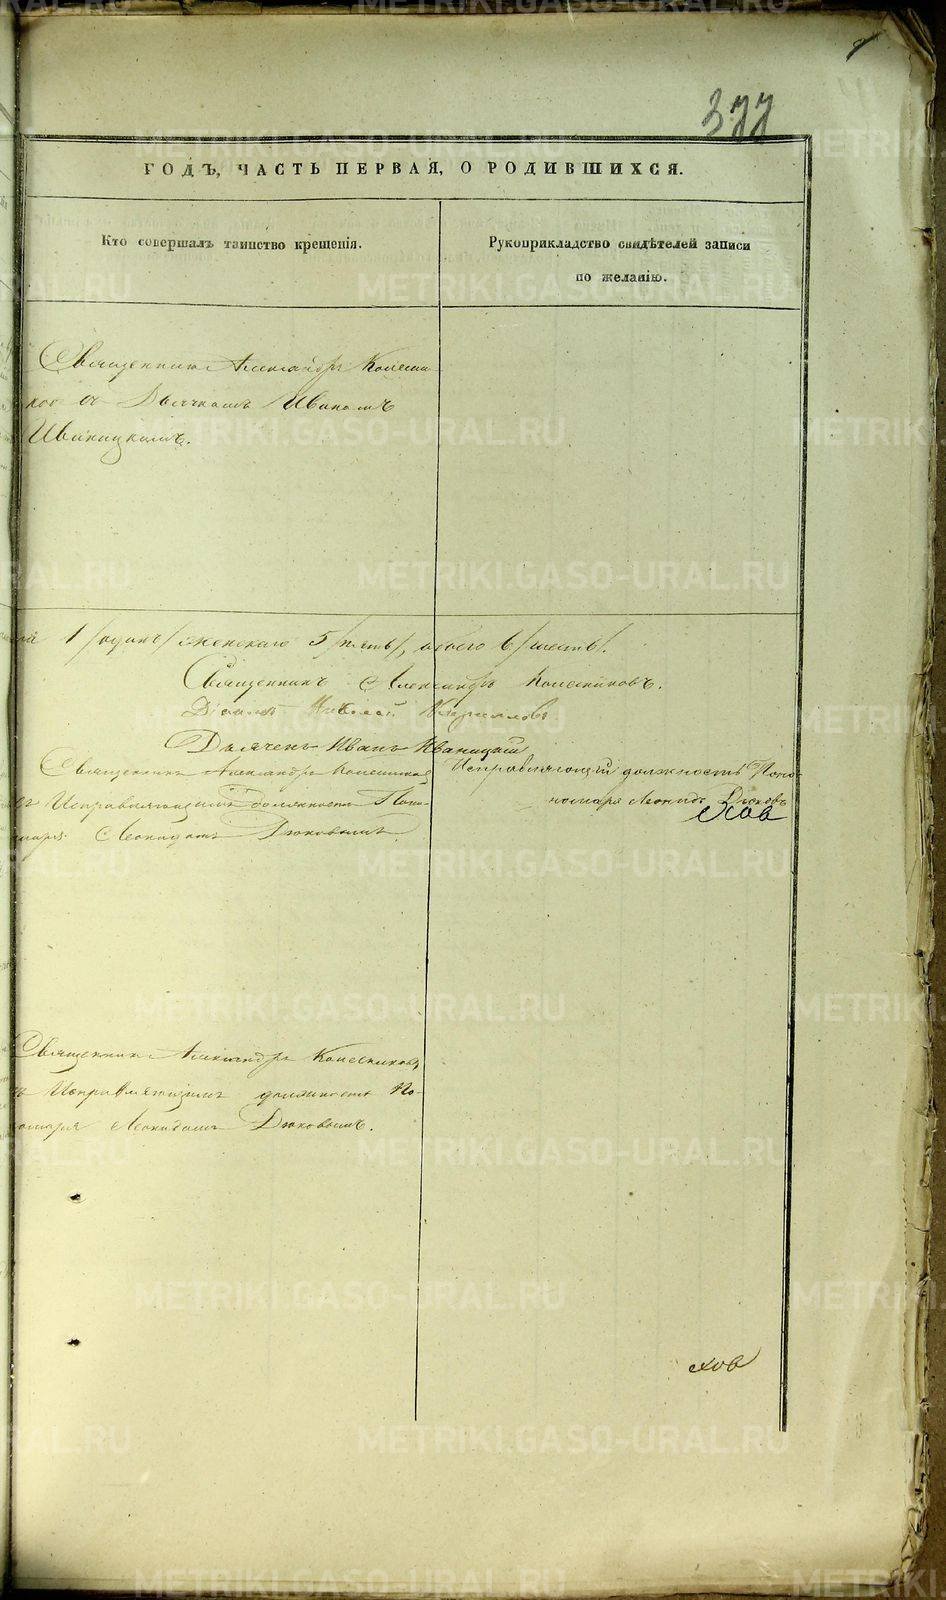 377
ГОДЪ, ЧАСТЬ ПЕРВАЯ, О РОДИВШИХСЯ.
Кто совершалъ таинство крещенія.
Рукоприкладство свидѣтелей записи
по желанію.
Священникъ Александръ Колесни-
ковъ съ Дьячкомъ Иваномъ
Иваницкимъ.
1 /одинъ/ женскаго 5 /пять/, обоего 6 /шесть/.
Священникъ Александръ Колесниковъ.
Діаконъ Николай
Дьячекъ Иванъ Иваницкій
Священникъ Александръ Колесников
съ Исправляющимъ должность Поно-
маря Леонидомъ Дюковымъ.
Исправляющій должность Поно-
номаря Леонидъ Дюковъ
хов
Священникъ Александръ Колесниковъ
съ Исправляющимъ должность По-
номаря Леонидомъ Дюковымъ.
хов
METRIKI.GASO-URAL.RU